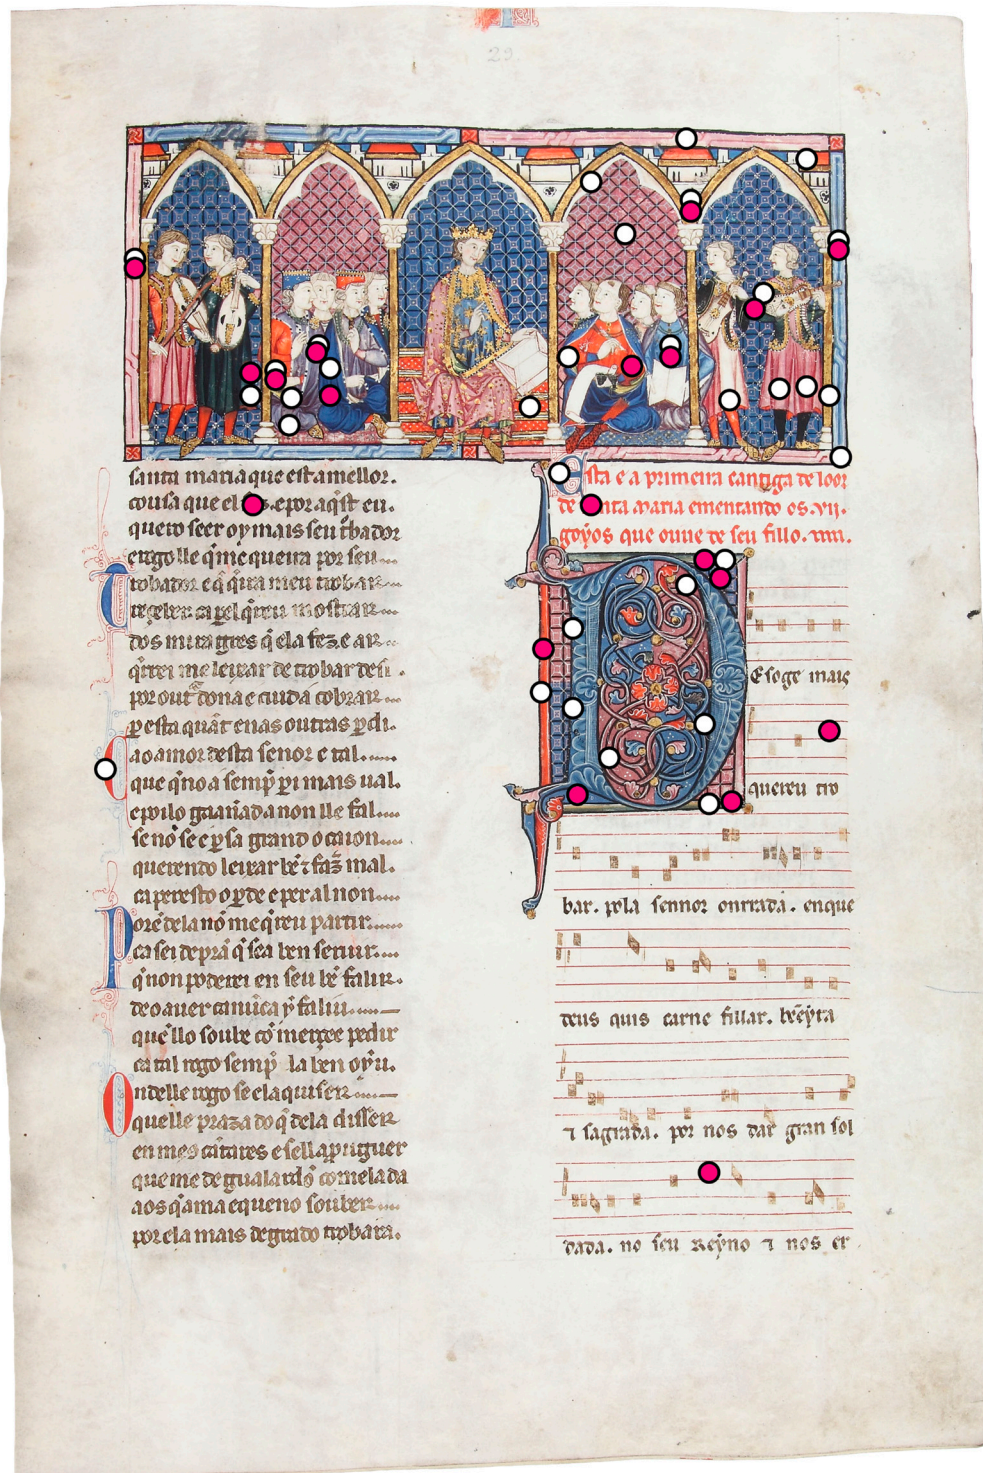 29.
santa maria que est a mellor.
cousa que el .e por aq̃st eu.
quero seer oy mais seu t̃bador
e rogo lle q̃ me queira por seu
Trobador e q̃ q̃ira meu trobar
reçeber. ca per el q̃reu mostrar
dos miragres q̃ ela fez. e ar
q̃rrei me leixar de trobar desi.
por out̃ dona e cuida cobrar
per esta quant enas outras perdi.
Ca o amor desta senor e tal.
que q̃no a semp̃ per i mais ual.
e poilo gaannada non lle fal
se nõ se e per sa grand ocaion
querendo leixar bẽ ⁊ faz̃ mal.
ca per esto o perde e per al non
Porẽ dela nõ me q̃reu partir
ca sei de prã q̃ sea ben seruir.
q̃ non poderei en seu bẽ falir.
de o auer ca nũca y faliu
que llo soube cõ merçee pedir
ca tal rogo semp̃ la ben oyu.
Onde lle rogo se ela quiser
que lle praza do q̃ dela disser
en mes cãtares e sell aprouguer
que me de gualardõ com ela da
aos q̃ ama e queno souber
por ela mais de grado trobara.
Esta e a primeira cantiga de loor
de nta maria ementando os .vii.
goyos que ouue de seu fillo.
Des oge mais
quereu tro
bar. pola sennor onrrada. en que
deus quis carne fillar. bẽeyta
⁊ sagrada. por nos dar gran sol
dada. no seu reyno ⁊ nos er